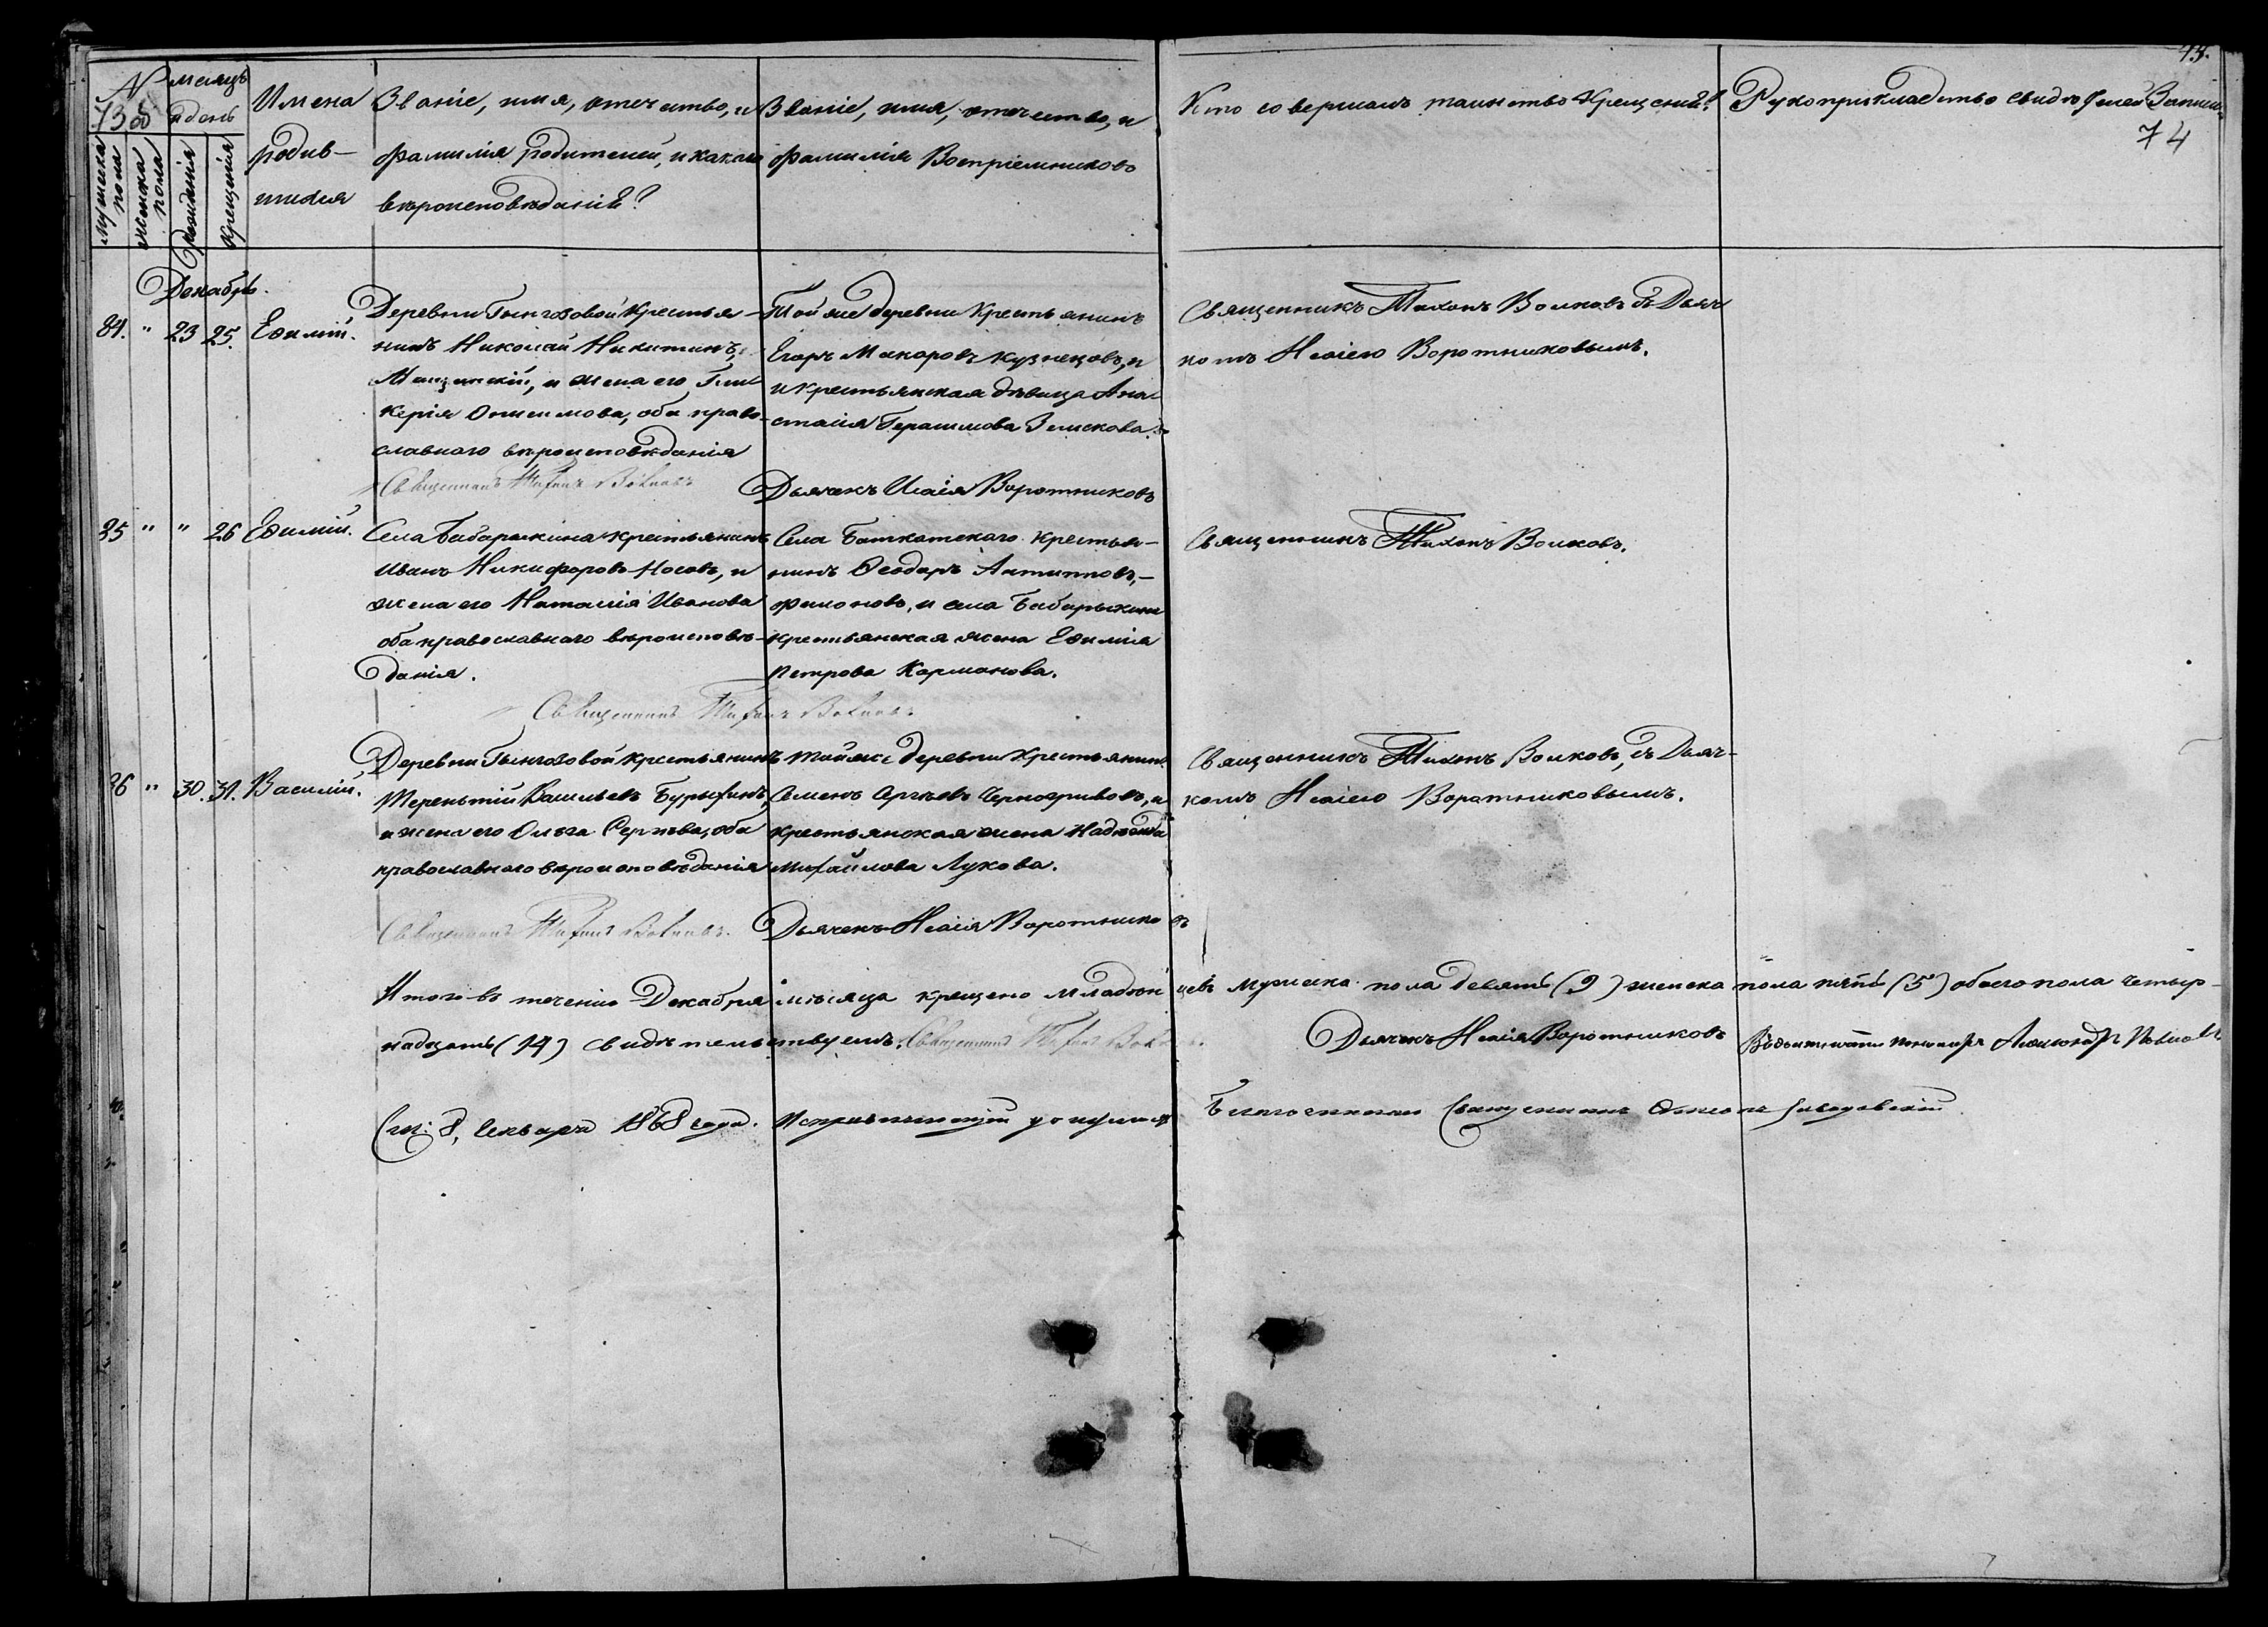 43.
74
№ 73 об
месяцъ и день
Имена родив-шихся
Званіе, имя, отечество, и
фамилія родителей, и какаго
вѣроисповѣданія?
Званіе, имя, отечество, и
фамилія Воспріемниковъ
Кто совершалъ таинство Крещенія?
Рукоприкладство свидѣтелей Записи
мужска пола
женска пола
рожденія
крещенія
Декабрь.
84. " 23 25. Евѳимій.
Деревни Тынгозовой Крестья-
нинъ Николай Никитинъ
Мащинскій, и жена его Гли-
керія Онисимова, оба право-
славнаго вѣроисповѣданія
Священникъ Тихонъ Волковъ
Той же деревни Крестьянинъ
Егоръ Макаровъ Кузнецовъ, и
и крестьянская дѣвица Ана-
стасія Герасимова Земскова.
Дьячекъ Исаія Воротниковъ
Священникъ Тихонъ Волковъ съ Дьяч-
комъ Исаіею Воротниковымъ.
85 " " 26 Евѳимій.
Села Бабарыкина крестьянинъ
Иванъ Никифоровъ Носовъ, и
жена его Наталія Иванова
оба православнаго вѣроисповѣ-
данія.
Священникъ Тихонъ Волковъ
Села Баткатскаго крестья-
нинъ Ѳеодоръ Антиповъ
Филоновъ, и села Бабарыкина
крестьянская жена Евѳимія
Петрова Карманова.
Священникъ Тихонъ Волковъ.
86 " 30. 31. Василій.
Деревни Тынгозовой крестьянинъ
Терентій Васильевъ Бурыхинъ,
и жена его Ольга Сергѣева, оба
православнаго вѣроисповѣданія
Священникъ Тихонъ Волковъ.
той же деревни Крестьянинъ
Семенъ Сергѣевъ Черногривовъ, и
крестьянская жена Надежда
Михайлова Лукова.
Дьячекъ Исаія Воротниковъ
Священникъ Тихонъ Волковъ, съ Дьяч-
комъ Исаіею Воротниковымъ.
Итого въ теченіи Декабря мѣсяца крещено младенцевъ мужска пола девять (9) женска пола пять (5) обоего пола четыр-
надцать (14) свидѣтельствуемъ. Священникъ Тихонъ Волковъ. Дьячекъ Исаія Воротниковъ пономарь Александръ
8, Генваря 1868 года. Исправляющій Благочиннаго Священникъ